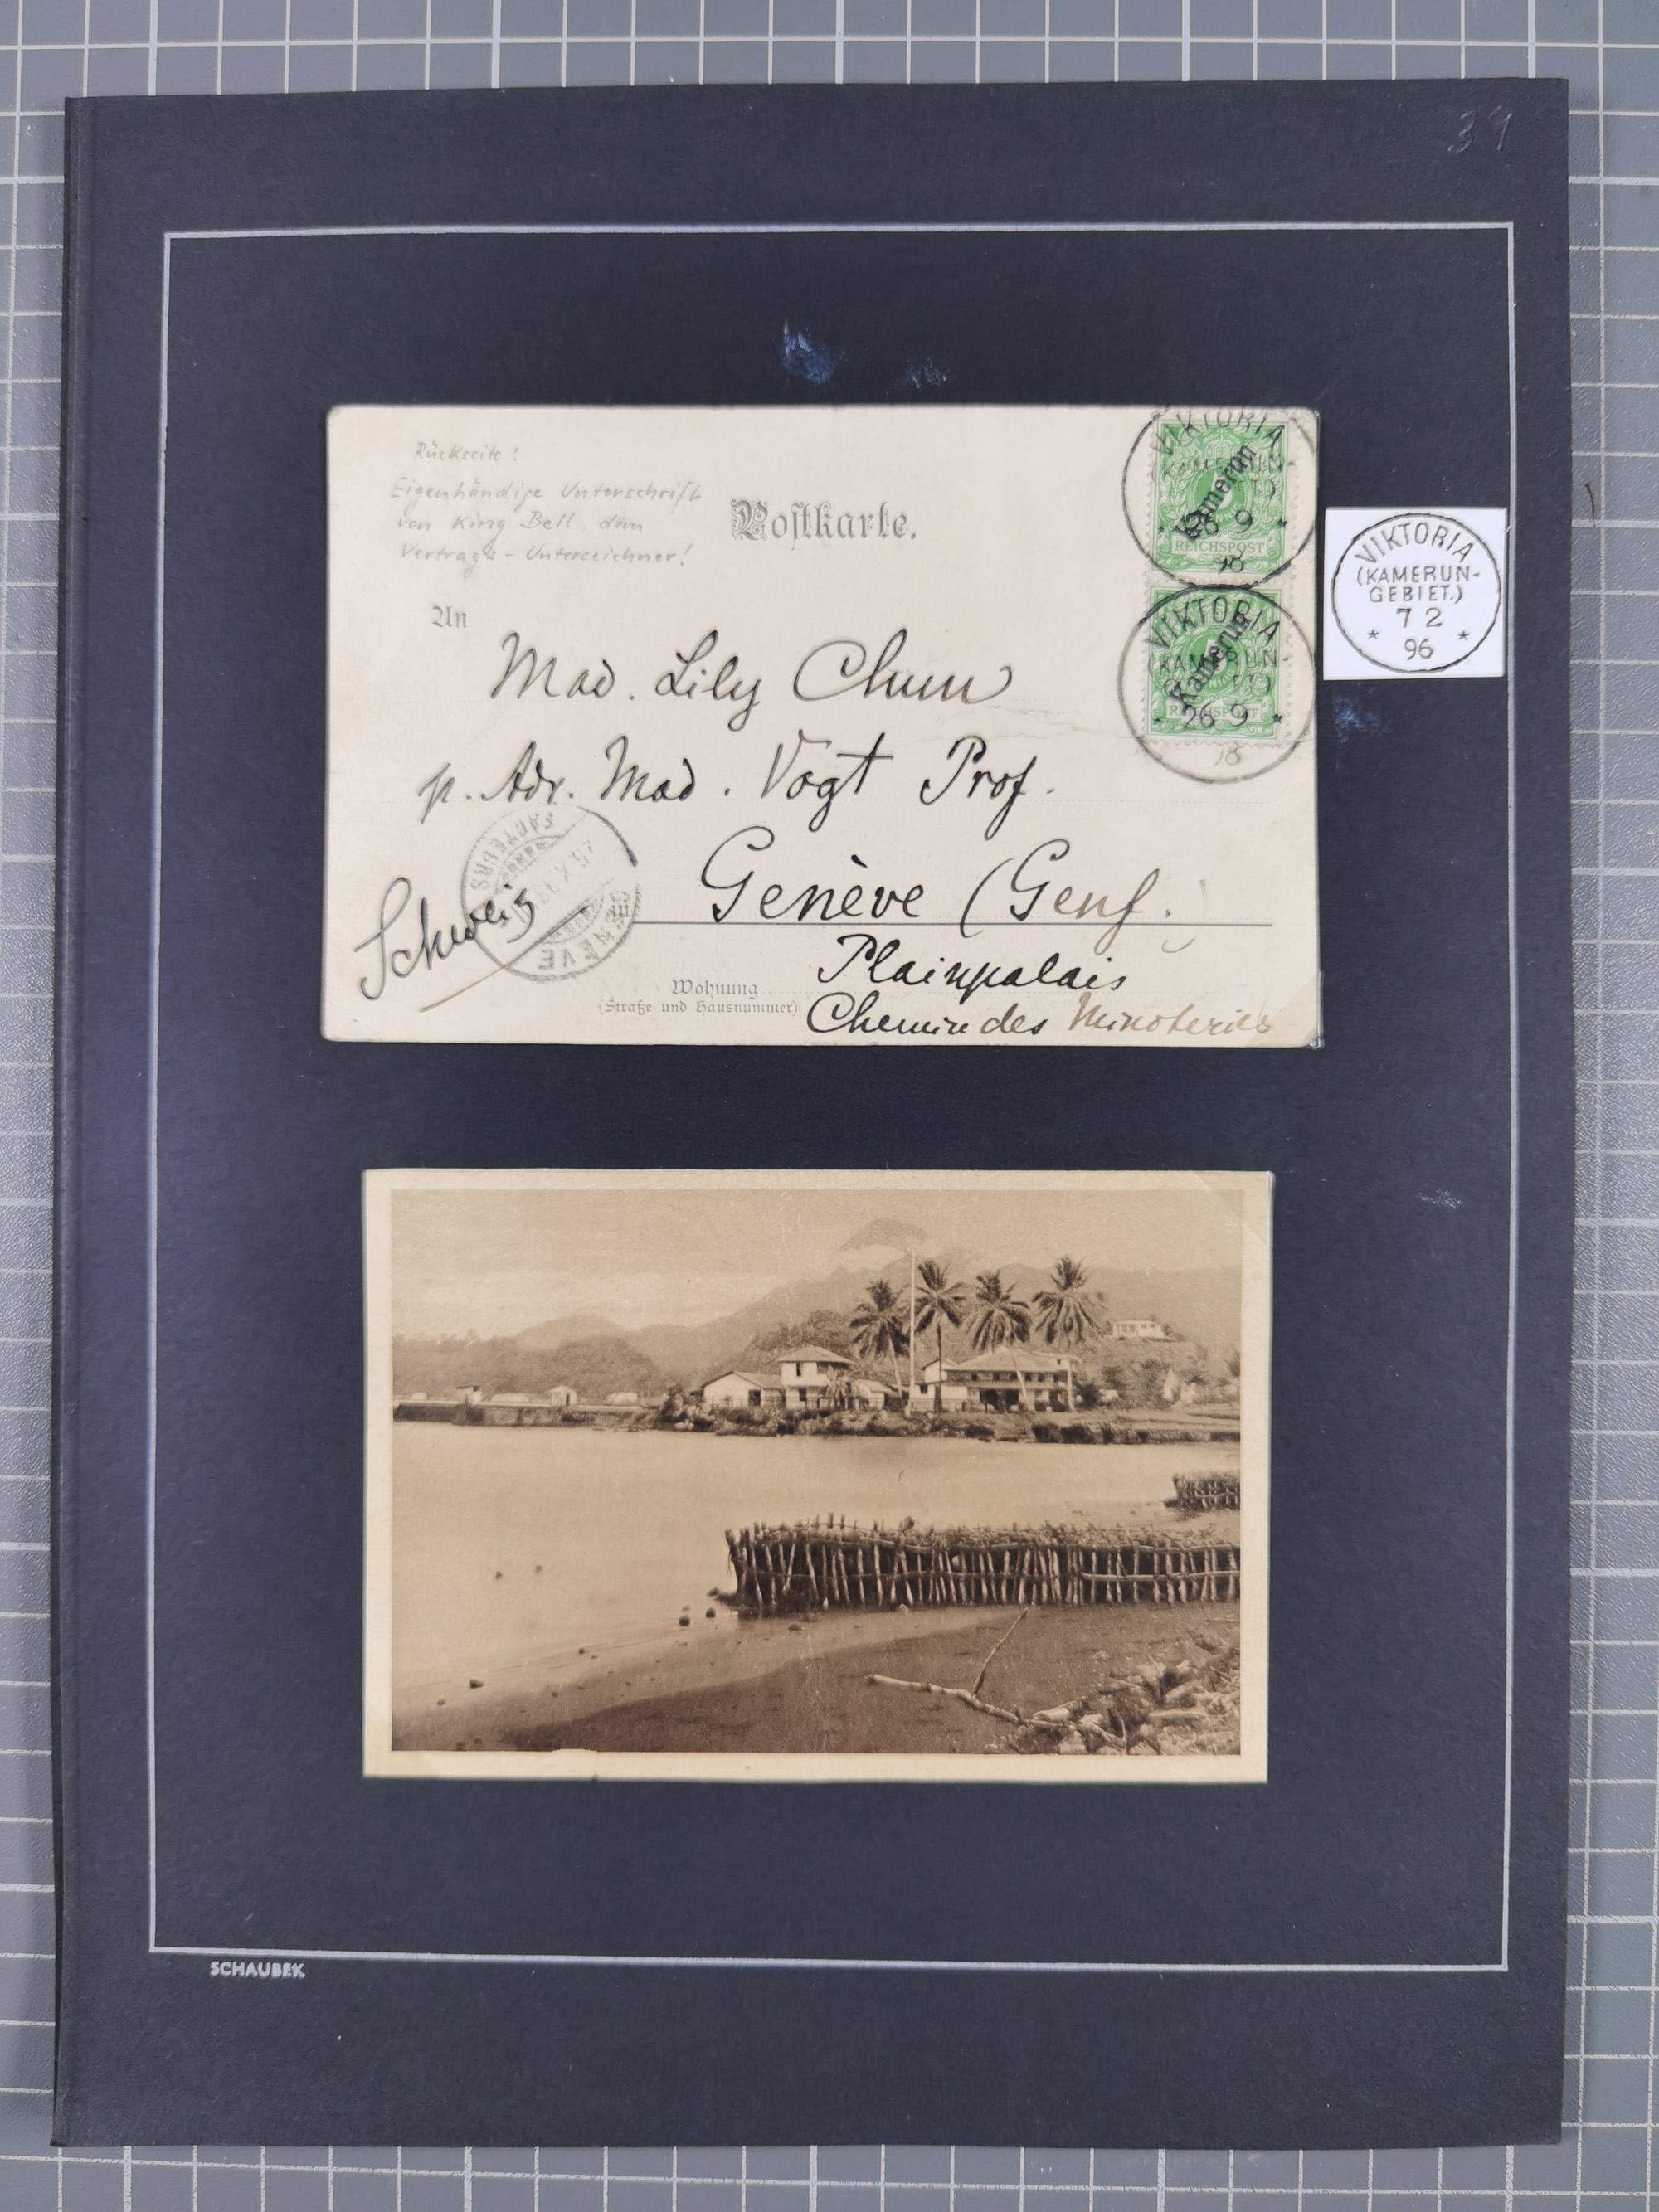 39
Rückseite!
Eigenhändige Unterschrift
von King Bell, dem
Vertrags-Unterzeichner!
Postkarte.
VIKTORIA
Kamerun
26 9
98
REICHSPOST
VIKTORIA
(KAMERUN-
Kamerun
26 9
98
REICHSPOST
VIKTORIA
(KAMERUN-
GEBIET.)
7 2
* *
96
An
Mad. Lily
p. Adr. Mad. Vogt Prof.
Genève (Genf.)
Schweiz
in
GENEVE
Plainpalais
Wohnung
(Straße und Hausnummer)
Chemin des Minoteries
SCHAUBEK